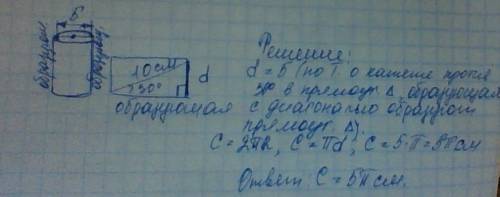 5
образующ.
образующ.
10 см
30°
d
образующая
Решение:
d = 5 (по т. о катете против
30° в прямоуг. Δ, образующая
с диагональю образуют
прямоуг. Δ).
C = 2πR, C = πd; C = 5·π = 5π см
Ответ: C = 5π см.